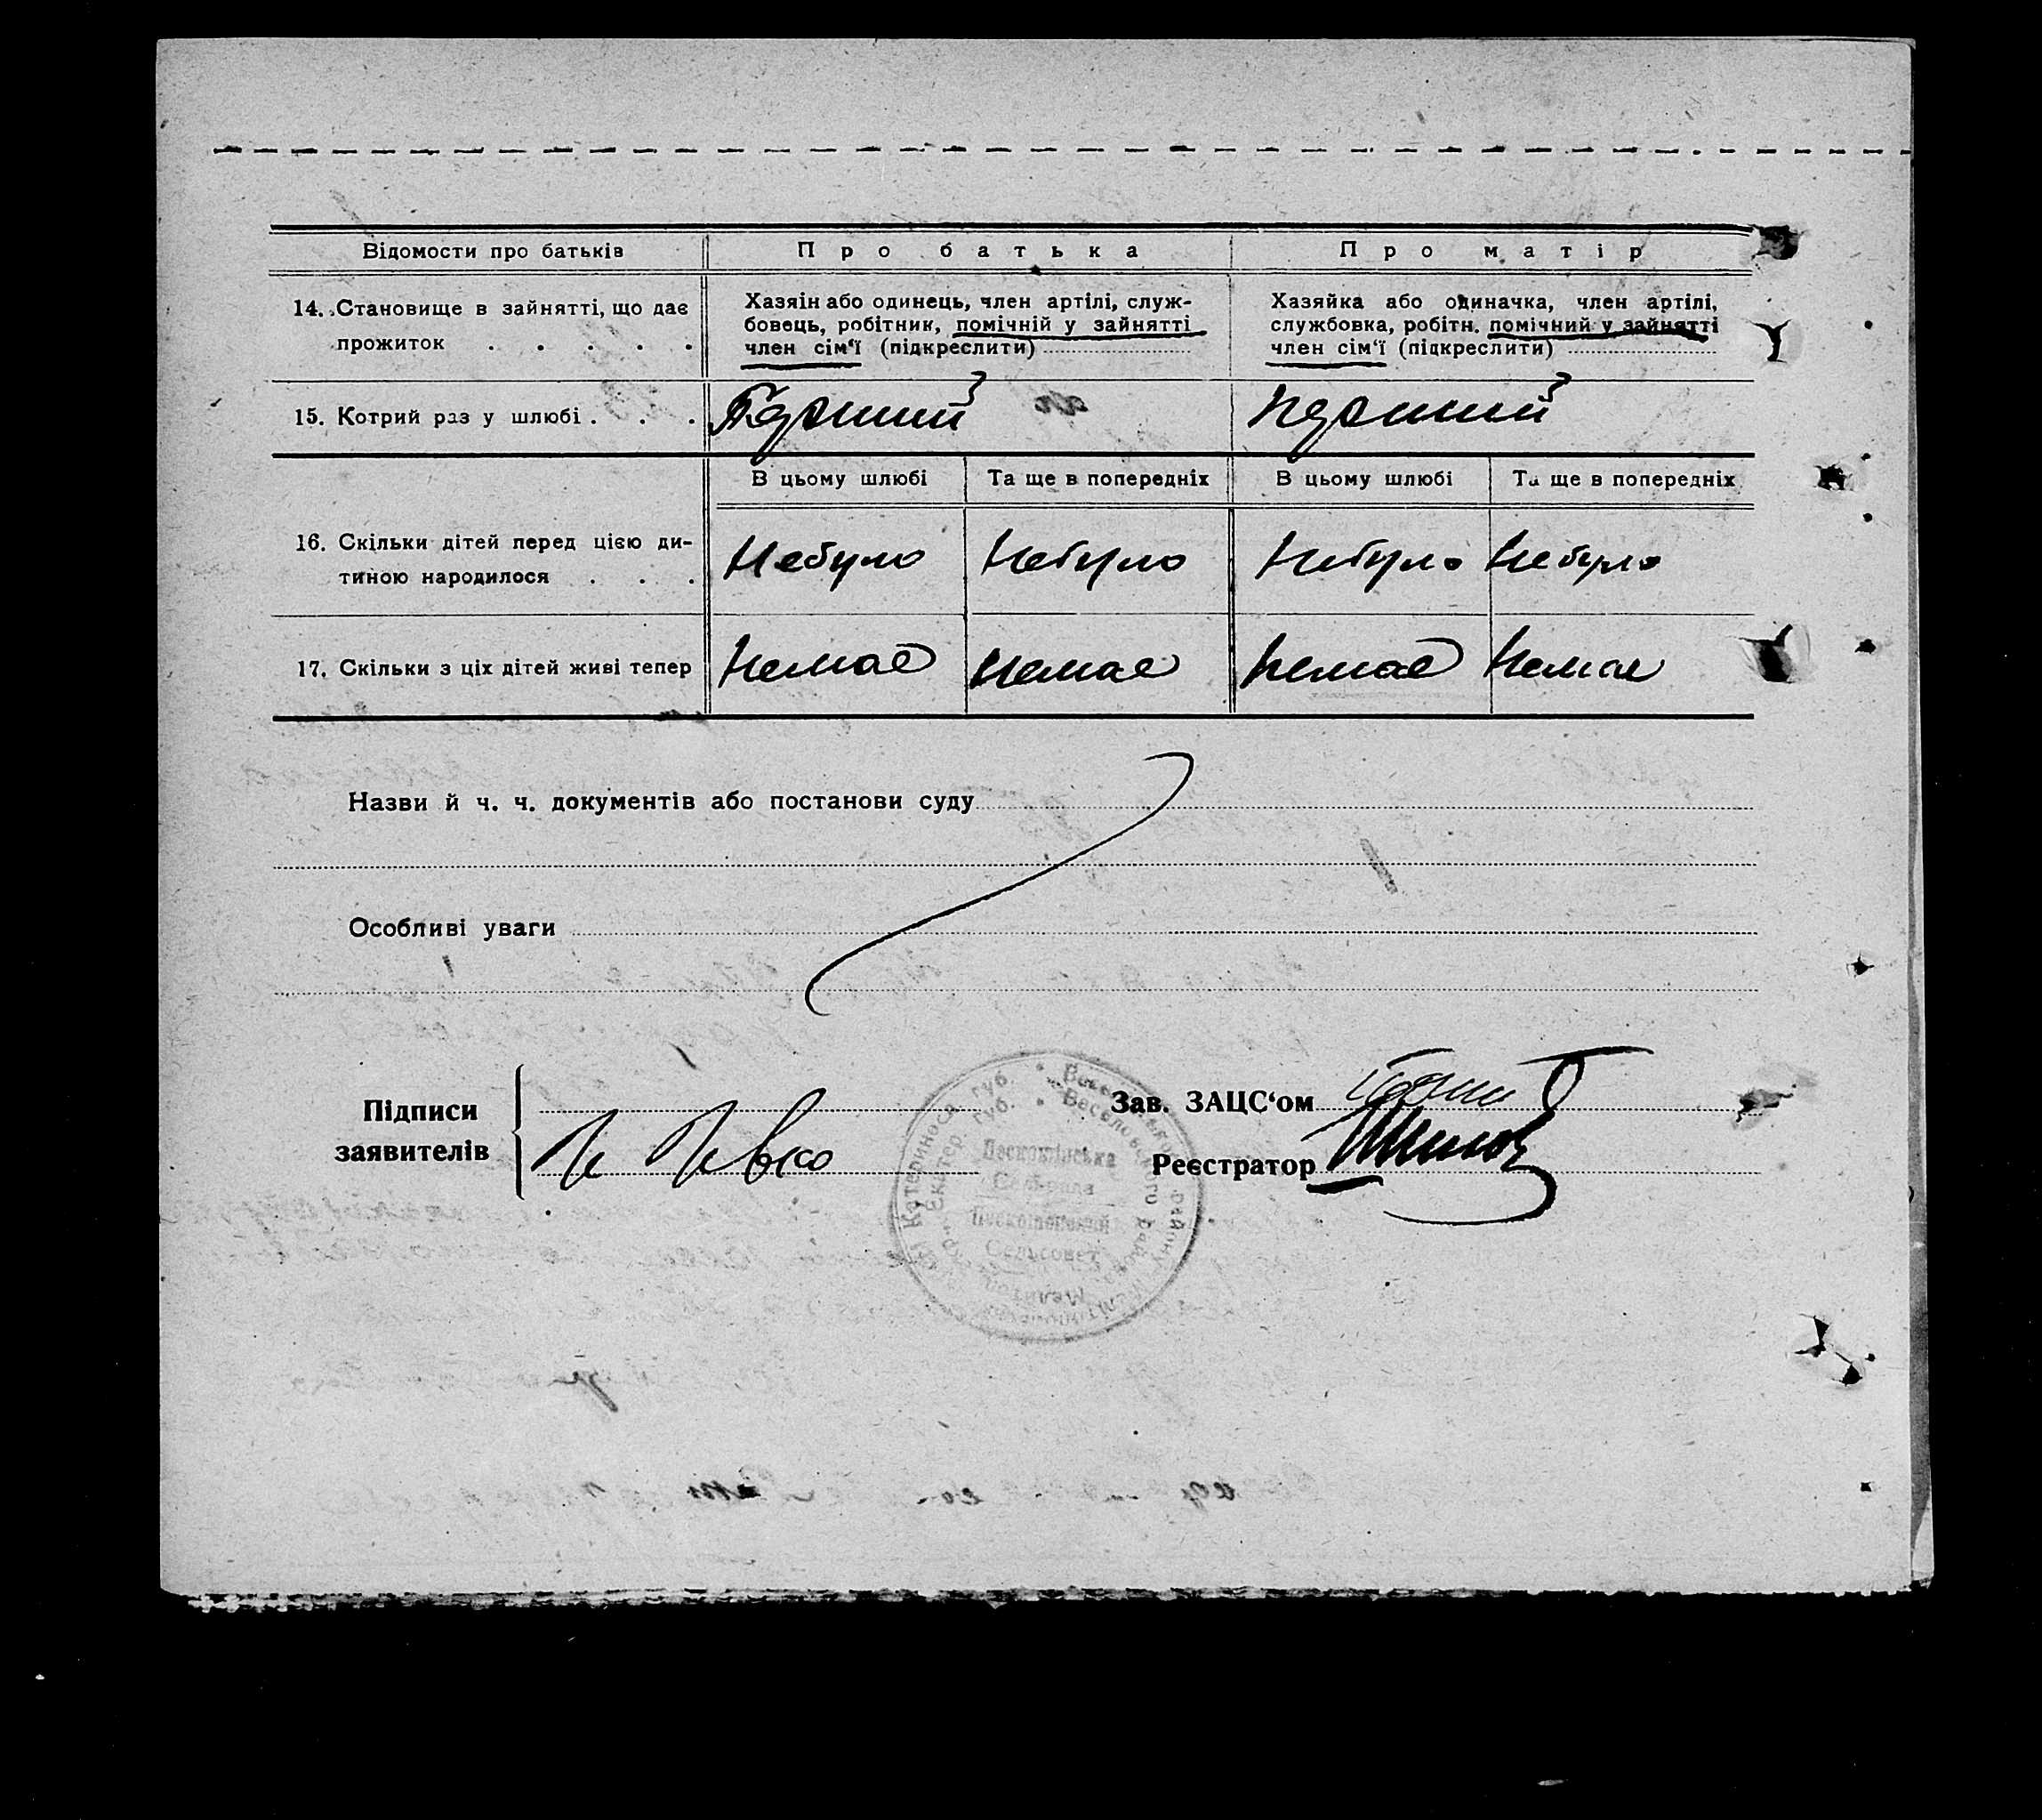 Відомости про батьків
Про батька
Про матір
14. Становище в зайнятті, що дає
прожиток . . . . .
Хазяін або одинець, член артілі, служ-
бовець, робітник, помічній у зайнятті
член сім‘ї (підкреслити)
Хазяйка або одиначка, член артілі,
службовка, робітн. помічний у зайнятті
член сім‘ї (підкреслити)
15. Котрий раз у шлюбі . . .
Перший
перший
В цьому шлюбі
Та ще в попередніх
В цьому шлюбі
Та ще в попередніх
16. Скільки дітей перед цією ди-
тиною народилося . . .
Небуло
Небуло
Небуло
Небуло
17. Скільки з ціх дітей живі тепер
Немає
Немає
Немає
Немає
Назви й ч. ч. документів або постанови суду
Особливі уваги
Підписи
заявителів
Зав. ЗАЦС‘ом
Реєстратор
Сельсовет